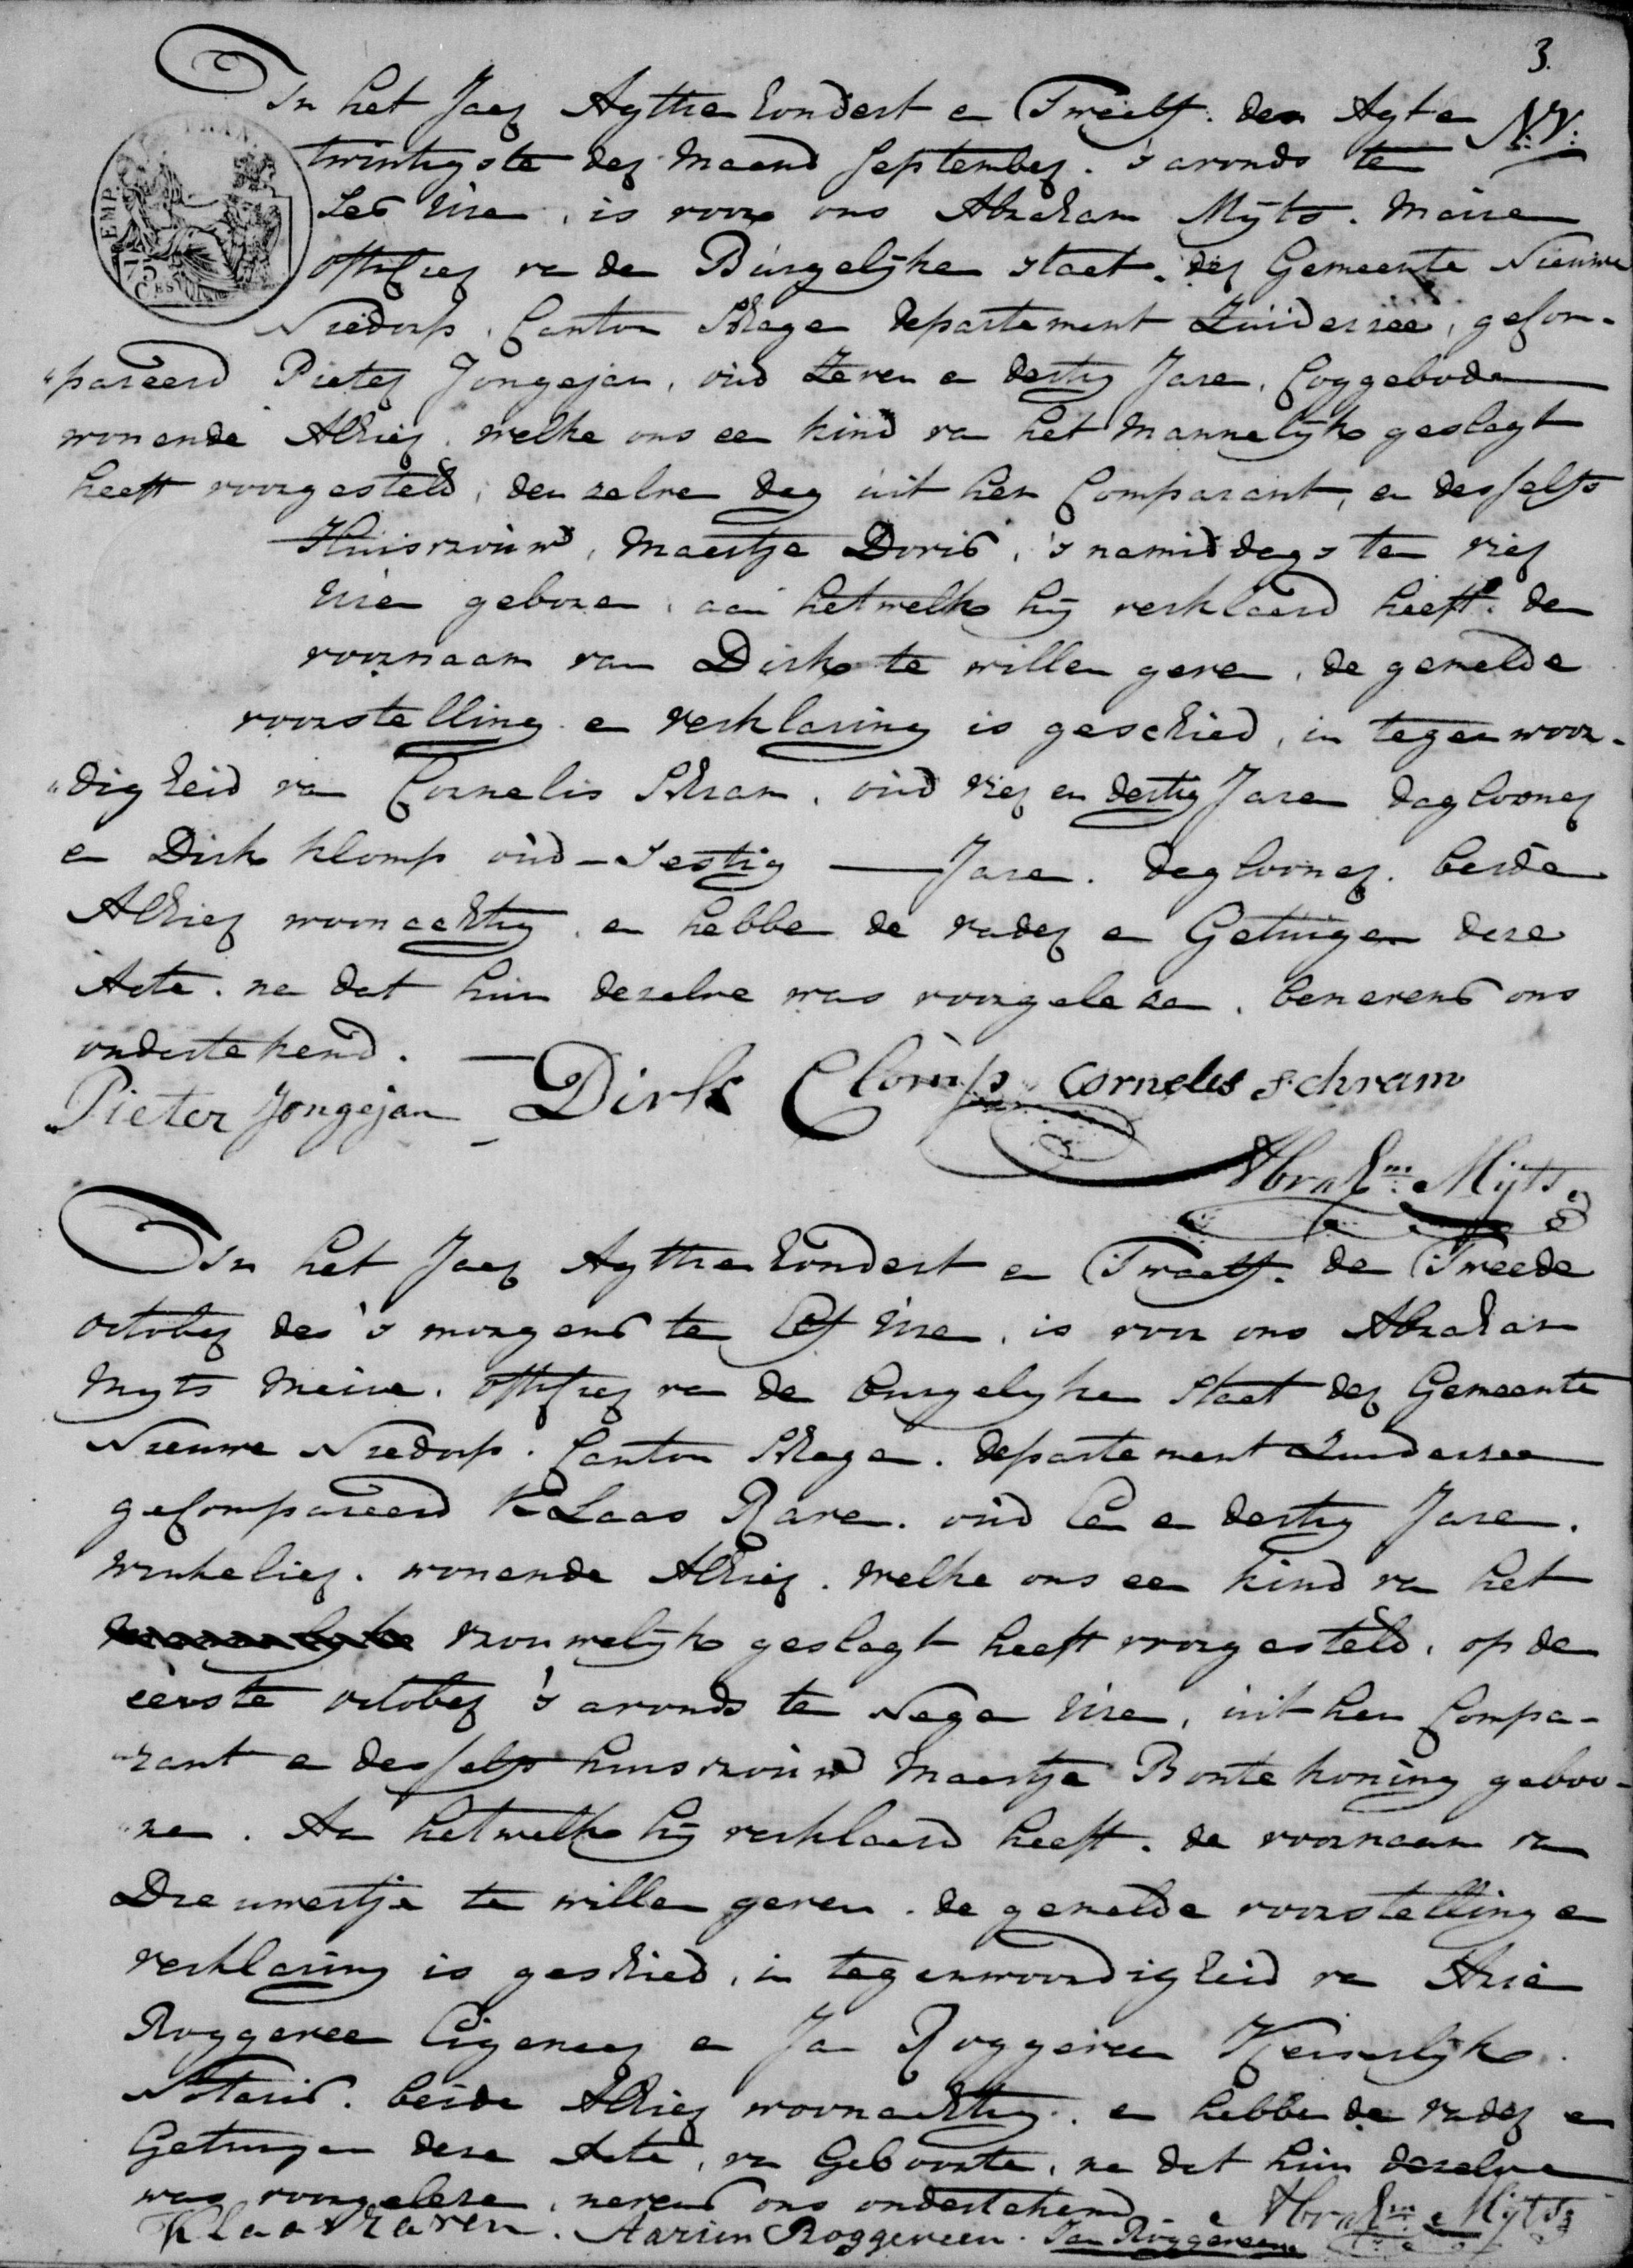 3.
In het Jaar Agttien hondert en Twaalf. den Agt en N:N:
twintigste der Maand September. 's avonds te
Ses Uren, is voor ons Abraham Mijts. Maire
Officier van den Burgelijken staat. der Gemeente Nieuwe
Niedorp, Canton Schagen Departement Zuiderzee, gecom-
"pareerd Pieter Jongejan, oud Zeven en dertig Jaren, Coggebode
wonende Alhier, welke ons een kind van het Mannelijk geslagt
heeft voorgesteld, denzelven dag uit hem Comparant, en desselfs
Huisvrouw, Maartje Doris, 's namiddags ten vier
Uren geboren, aan hetwelk hij verklaard heeft. den
voornaam van Dirk te willen geven, de gemelde
voorstelling en verklaring is geschied, in tegenwoor-
"digheid van Cornelis Schram, oud vier en dertig Jaren daglooner
en Dirk Klomp oud - Sestig — Jaren. daglooner. beide
Alhier woonachtig, en hebben de vader en Getuigen deze
Acte. na dat hun dezelve was voorgelezen. benevens ons
ondertekend.
Pieter Jongejan Dirk Clomp Cornelis Schram
Abrahm: Mijts
In het Jaar Agttien hondert en Twaalf. den Tweede
October des 's morgens te Elf Uren, is voor ons Abraham
Myts Maire. Officier van den burgelyken Staat der Gemeente
Nieuwe Niedorp. Canton Schagen. Departement Zuiderzee
gecompareerd Klaas Raven. oud Een en dertig Jaren.
winkelier. wonende Alhier. welke ons een kind van het
vrouwelijk geslagt heeft voorgesteld, op de
eerste October 's avonds te Negen Uren, uit hem Compa-
"rant en desselfs huisvrouw Maartje Bontekoning geboo-
"ren. Aan hetwelk hij verklaard heeft. de voornaam van
Dieuwertje te willen geven. de gemelde voorstelling en
verklaring is geschied, in tegenwoordigheid van Arie
Roggeveen Eigenaar en Jan Roggeveen Keizerlijk
Notaris. beide Alhier woonachtig. en hebben de vader en
Getuigen deze Acte, van Geboorte, na dat hun dezelve
was voorgelezen, nevens ons ondertekend. Abrahm: Mijts
Klaas Raven. Aarien Roggeveen. Jan Roggeveen